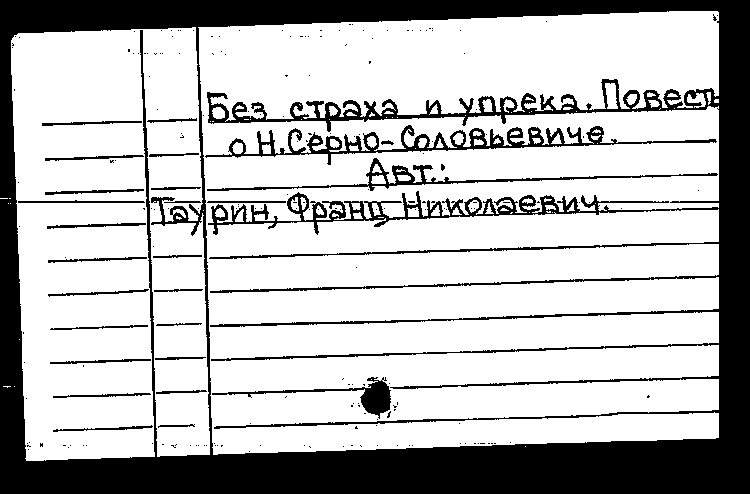 Без страха и упрека. Повесть
о Н. Серно-Соловьевиче.
Авт.:
Таурин, Франц Николаевич.